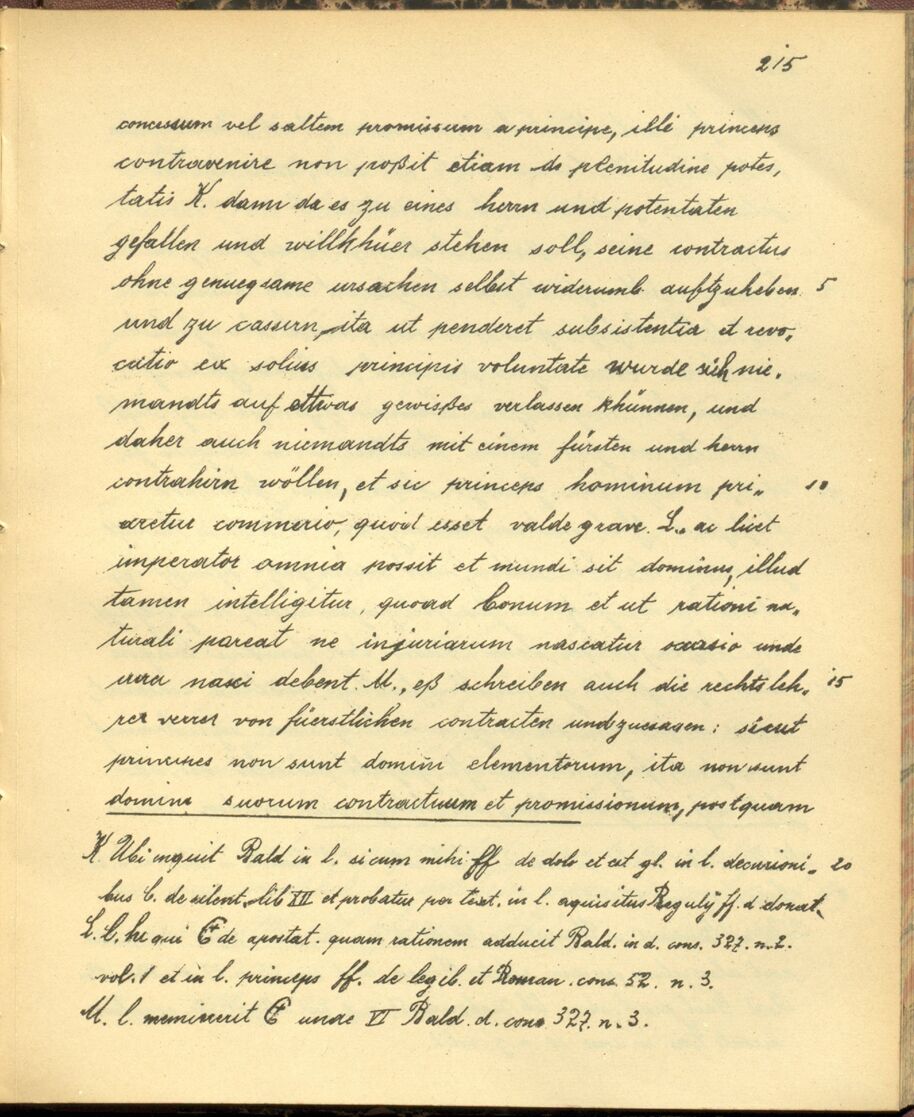 215
concessum vel saltem promissum a principe, ille princeps
contravenire non poßit etiam de plenitudine potes,
tatis K. dann da es zu eines herrn und potentaten
gefallen und willkhüer stehen soll, seine contractus
ohne genuegsame ursachen selbst widerumb auftzuheben 5
und zu cassirn, ita ut penderet subsistentia et revo,
catio ex solius principis voluntate wurde sich nie,
mandts auf ettwas gewißes verlassen khünnen, und
daher auch niemandts mit einem fürsten und herrn
contrahirn wöllen, et sic princeps hominum pri, 10
aretur commerio, quod esset valde grave. L. ac licet
imperator omnia possit et mundi sit dominus, illud
tamen intelligitur, quoad bonum et ut rationi na,
turali pareat ne injuriarum nascatur occasio unde
iura nasci debent. M., eß schreiben auch die rechtsleh, 15
rer verrer von füerstlichen contracten und zuesagen: sicut
principes non sunt domini elementorum, ita non sunt
domini suorum contractuum et promissionum, postquam
K. Ubi inquit Bald in l. si cum mihi ff de dolo et est gl. in l. decurioni, 20
bus C. de silent. lib XII et probatur per text. in l. aquisitus Regulÿ ff. d. donat.
L. l. hi qui C de apostat. quam rationem adducit Bald. in d. cons. 327. n. 2.
vol. 1 et in l. princeps ff. de legib. et Roman. cons. 52. n. 3.
M. l. meminerit C unde VI Bald. d. cons 327. n. 3.